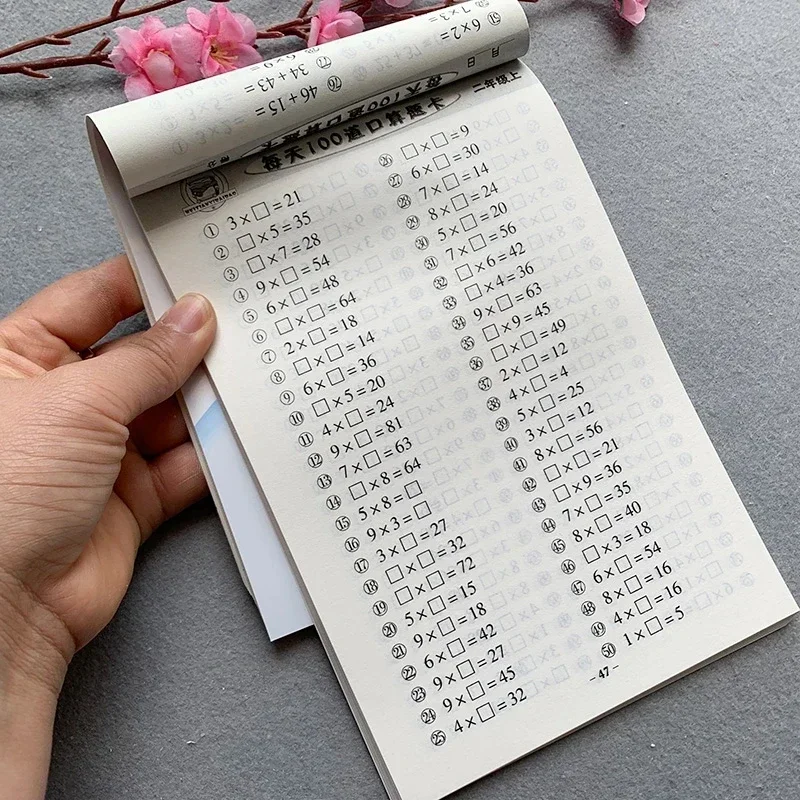 ㊿ 7×3=
�51 6×2=
6×9=
34+43=
46+15=
每天100道口算题卡
二年级上
每天100道口算题卡
① 3×□=21
② □×5=35
③ □×7=28
④ 9×□=54
⑤ 6×□=48
⑥ □×□=64
⑦ 2×□=18
⑧ □×□=14
⑨ 6×□=36
⑩ □×5=20
⑪ 4×□=24
⑫ 9×□=81
⑬ 7×□=63
⑭ □×8=64
⑮ 5×8=□
⑯ 9×3=□
⑰ 3×□=27
⑱ □×□=32
⑲ □×□=72
⑳ 5×□=15
㉑ 9×□=18
㉒ 6×□=42
㉓ 9×□=27
㉔ 9×□=45
㉕ 4×□=32
㉖ □×□=9
㉗ 6×□=30
㉘ 7×□=14
㉙ 8×□=24
㉚ 5×□=20
㉛ 7×□=56
㉜ □×6=42
㉝ □×4=36
㉞ 9×□=63
㉟ □×9=45
㊱ □×□=49
㊲ 2×□=12
㊳ 4×□=4
㊴ 5×□=25
㊵ 3×□=12
㊶ 8×□=56
㊷ □×□=21
㊸ □×9=36
㊹ 7×□=35
㊺ 8×□=40
㊻ □×3=18
㊼ 6×□=54
㊽ 8×□=16
㊾ 4×□=16
㊿ 1×□=5
-47-